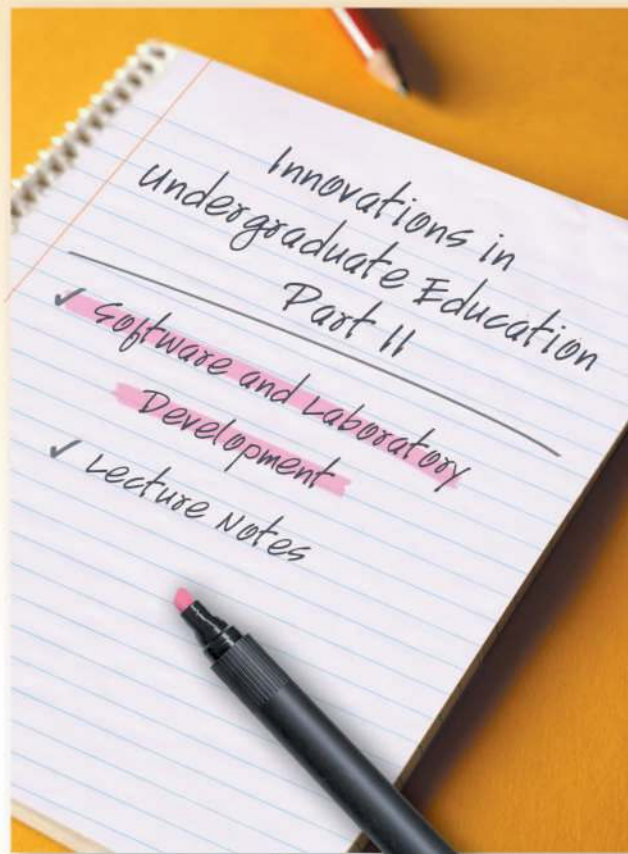 Innovations in
undergraduate Education
Part II
✓ Software and Laboratory
Development
✓ Lecture Notes